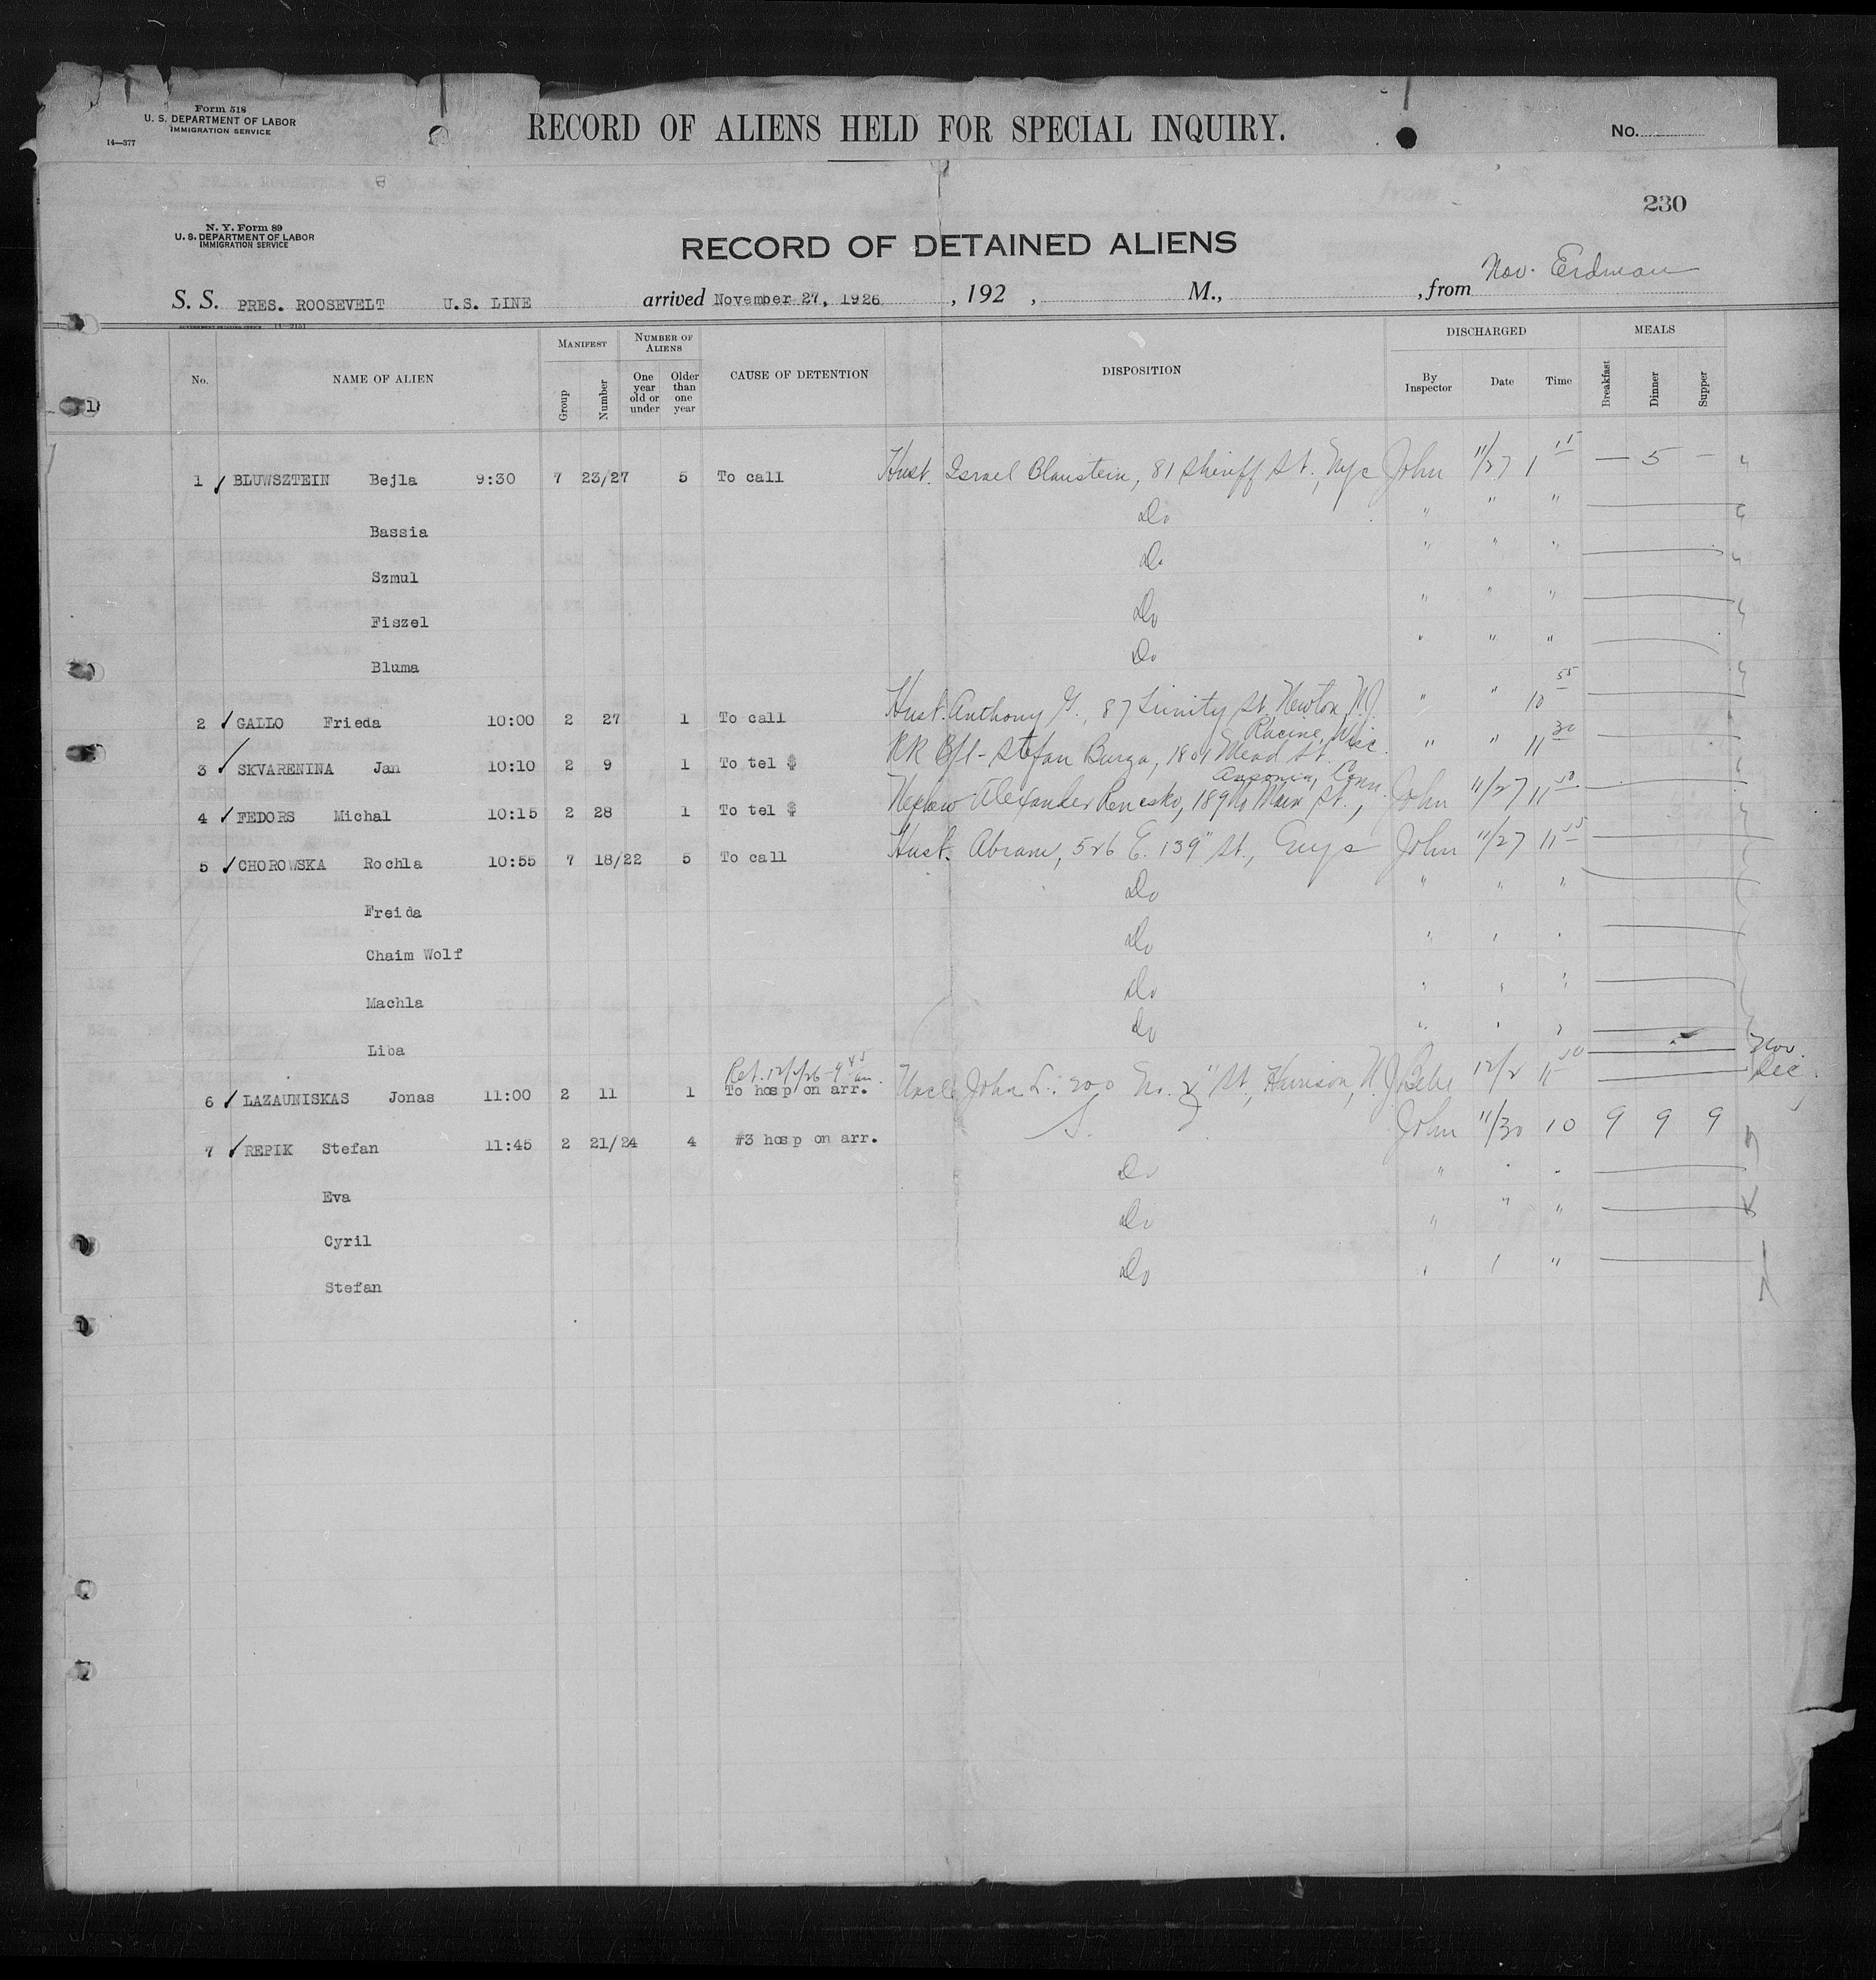 Form 518
U. S. DEPARTMENT OF LABOR
IMMIGRATION SERVICE
14—377
RECORD OF ALIENS HELD FOR SPECIAL INQUIRY.
No.
230
N. Y. Form 89
U. S. DEPARTMENT OF LABOR
IMMIGRATION SERVICE
RECORD OF DETAINED ALIENS
Nov. Erdman
S. S. PRES. ROOSEVELT U.S. LINE arrived November 27, 1926 , 192 , M., , from
No. NAME OF ALIEN MANIFEST Group Number NUMBER OF ALIENS One year old or under Older than one year CAUSE OF DETENTION DISPOSITION DISCHARGED By Inspector Date Time MEALS Breakfast Dinner Supper
1 BLUWSZTEIN Bejla 9:30 7 23/27 5 To call Hust. Israel Blaustein, 81 Sheriff St., Nyc John 11/27 1 15 — 5 —
Bassia Do " " "
Szmul Do " " "
Fiszel Do " " "
Bluma Do " " "
2 GALLO Frieda 10:00 2 27 1 To call Hust. Anthony G., 87 Trinity St, Newton, NJ. " " 10 55
Racine, Wisc.
3 SKVARENINA Jan 10:10 2 9 1 To tel $ Stefan Burga, 1809 Mead St. " " 11 30
Ansonia, Conn.
4 FEDORS Michal 10:15 2 28 1 To tel $ Nephew Alexander 189 No Main St., John 11/27 11 50
5 CHOROWSKA Rochla 10:55 7 18/22 5 To call Hust. Abram, 526 E. 139" St., Nyc John 11/27 11 55
Freida Do " " "
Chaim Wolf Do " " "
Machla Do " " "
Liba Do " " "
Ret. 12/1/26 - 9 45 am. Nov.
6 LAZAUNISKAS Jonas 11:00 2 11 1 To hosp on arr. Uncle John L. 200 No. 2" St., Harrison, N.J. 12/2 11 50 Dec.
7 REPIK Stefan 11:45 2 21/24 4 #3 hosp on arr. John 11/30 10 9 9 9
Eva Do " " "
Cyril Do " " "
Stefan Do " " "